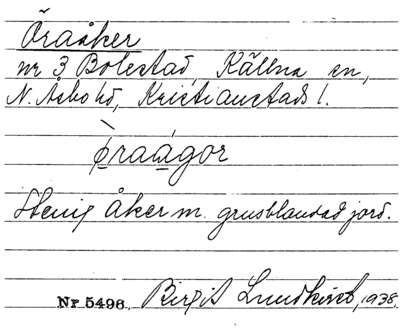 Öraåker
nr 3 Bolestad, Källna sn,
N. Åsbo hd, Kristianstads l.
ø̀raágor
Stenig åker m. grusblandad jord.
Nr 5496. Birgit Lundkvist, 1938.